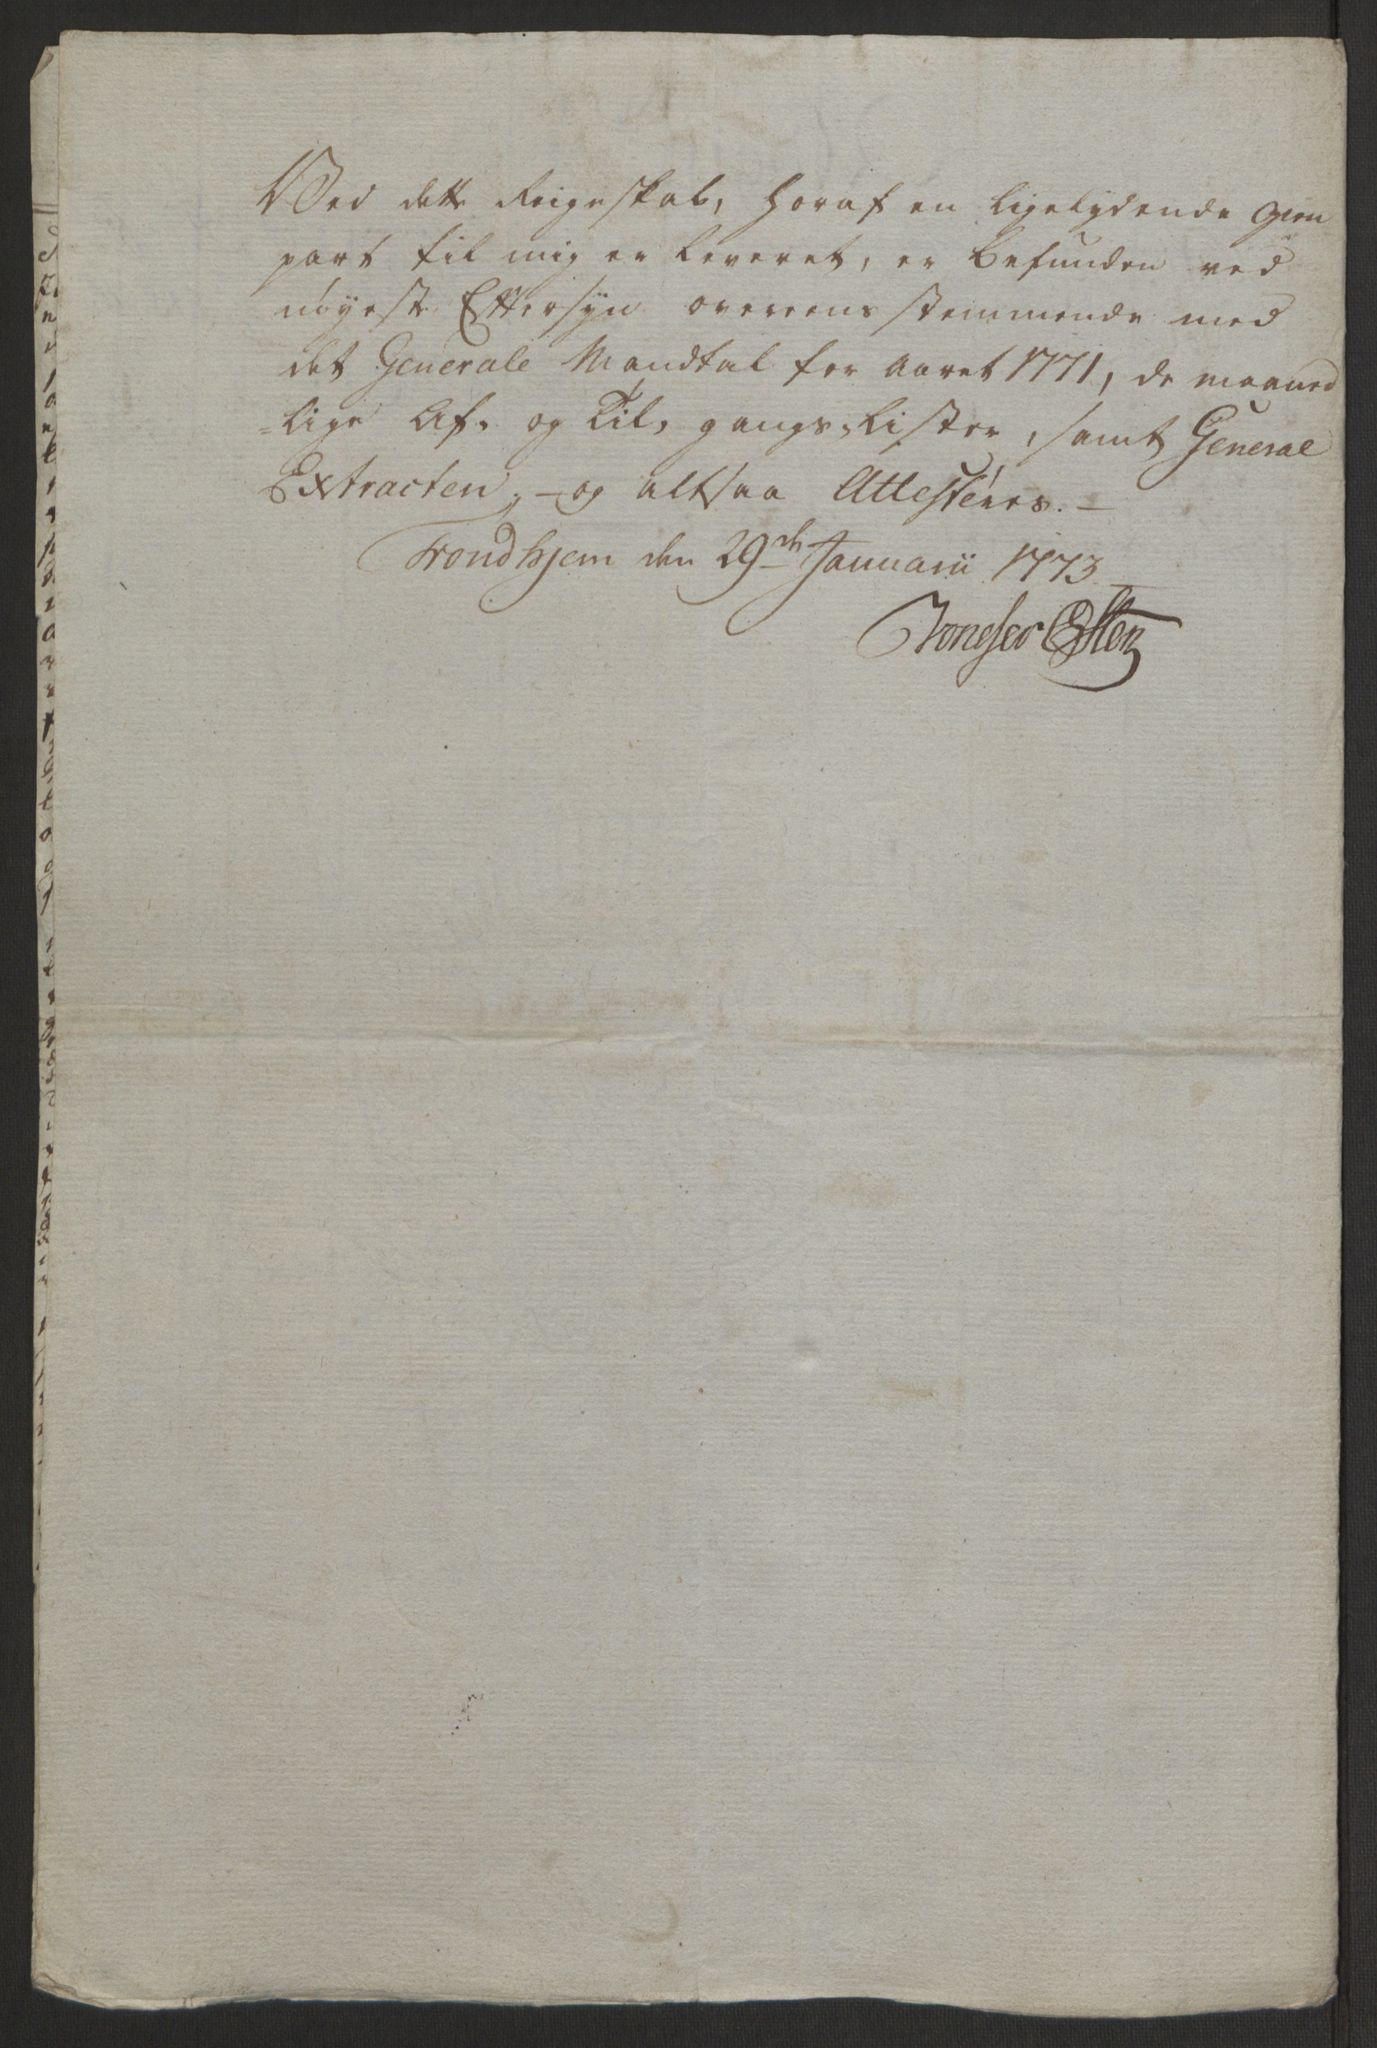 Ved dette Reigeskab, hvoraf en ligelydende Gien
part til mig er leveret, er befunden ved
nøyeste Eftersyn overeensstemmende med
det Generale Mandtal for Aaret 1771, de maaned
=lige Af- og Til-gangs-Lister, samt General
Extracten, - og altsaa Attesteres. -
Trondhjem den 29de Januarii 1773